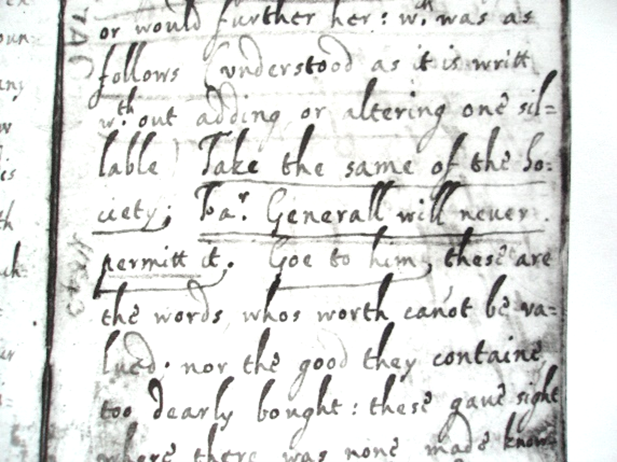 or would further her: wch. was as
follows (vnderstood as it is writt
wth. out adding or altering one sil=
lable) Take the same of the So:
ciety; Far. Generall will neuer.
permitt it. Goe to him, these are
the words, whos worth canot be va=
lued. nor the good they containe,
too dearly bought: these gaue sight
where there was none made know=